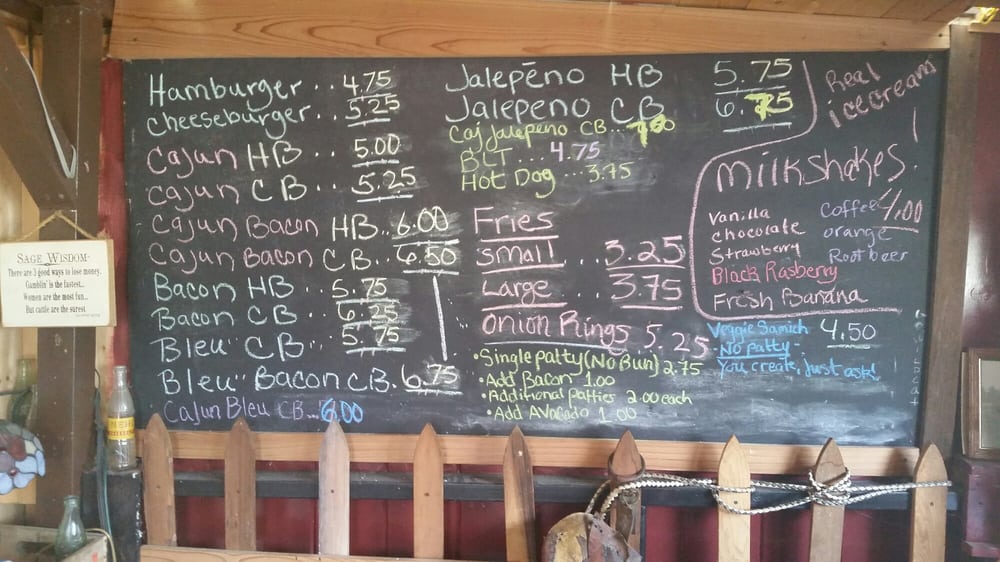 Hamburger .. 4.75
Cheeseburger .. 5.25
Cajun HB .. 5.00
Cajun CB .. 5.25
Cajun Bacon HB .. 6.00
Cajun Bacon CB .. 6.50
Bacon HB . 5.75
Bacon CB . 6.25
Bleu" CB . 5.75
Bleu" Bacon CB . 6.75
Cajun Bleu CB ... 6.00
Jalepēno HB 5.75
Jalepeno CB 6.75
Caj Jalepeno CB ... 7.00
BLT .... 4.75
Hot Dog ... 3.75
Fries
Small ... 3.25
Large ... 3.75
Onion Rings 5.25
• Single patty (No Bun) 2.75
• Add Bacon 1.00
• Additional patties 2.00 each
• Add Avocado 1.00
Real
icecream
!
Milkshakes
4.00
Vanilla
Chocolate
Strawberry
Black Rasberry
Fresh Banana
Coffee
orange
Root beer
Veggie Samich 4.50
No patty
You create, just ask!
SAGE WISDOM
There are 3 good ways to lose money.
Gamblin' is the fastest...
Women are the most fun...
But cattle are the surest.